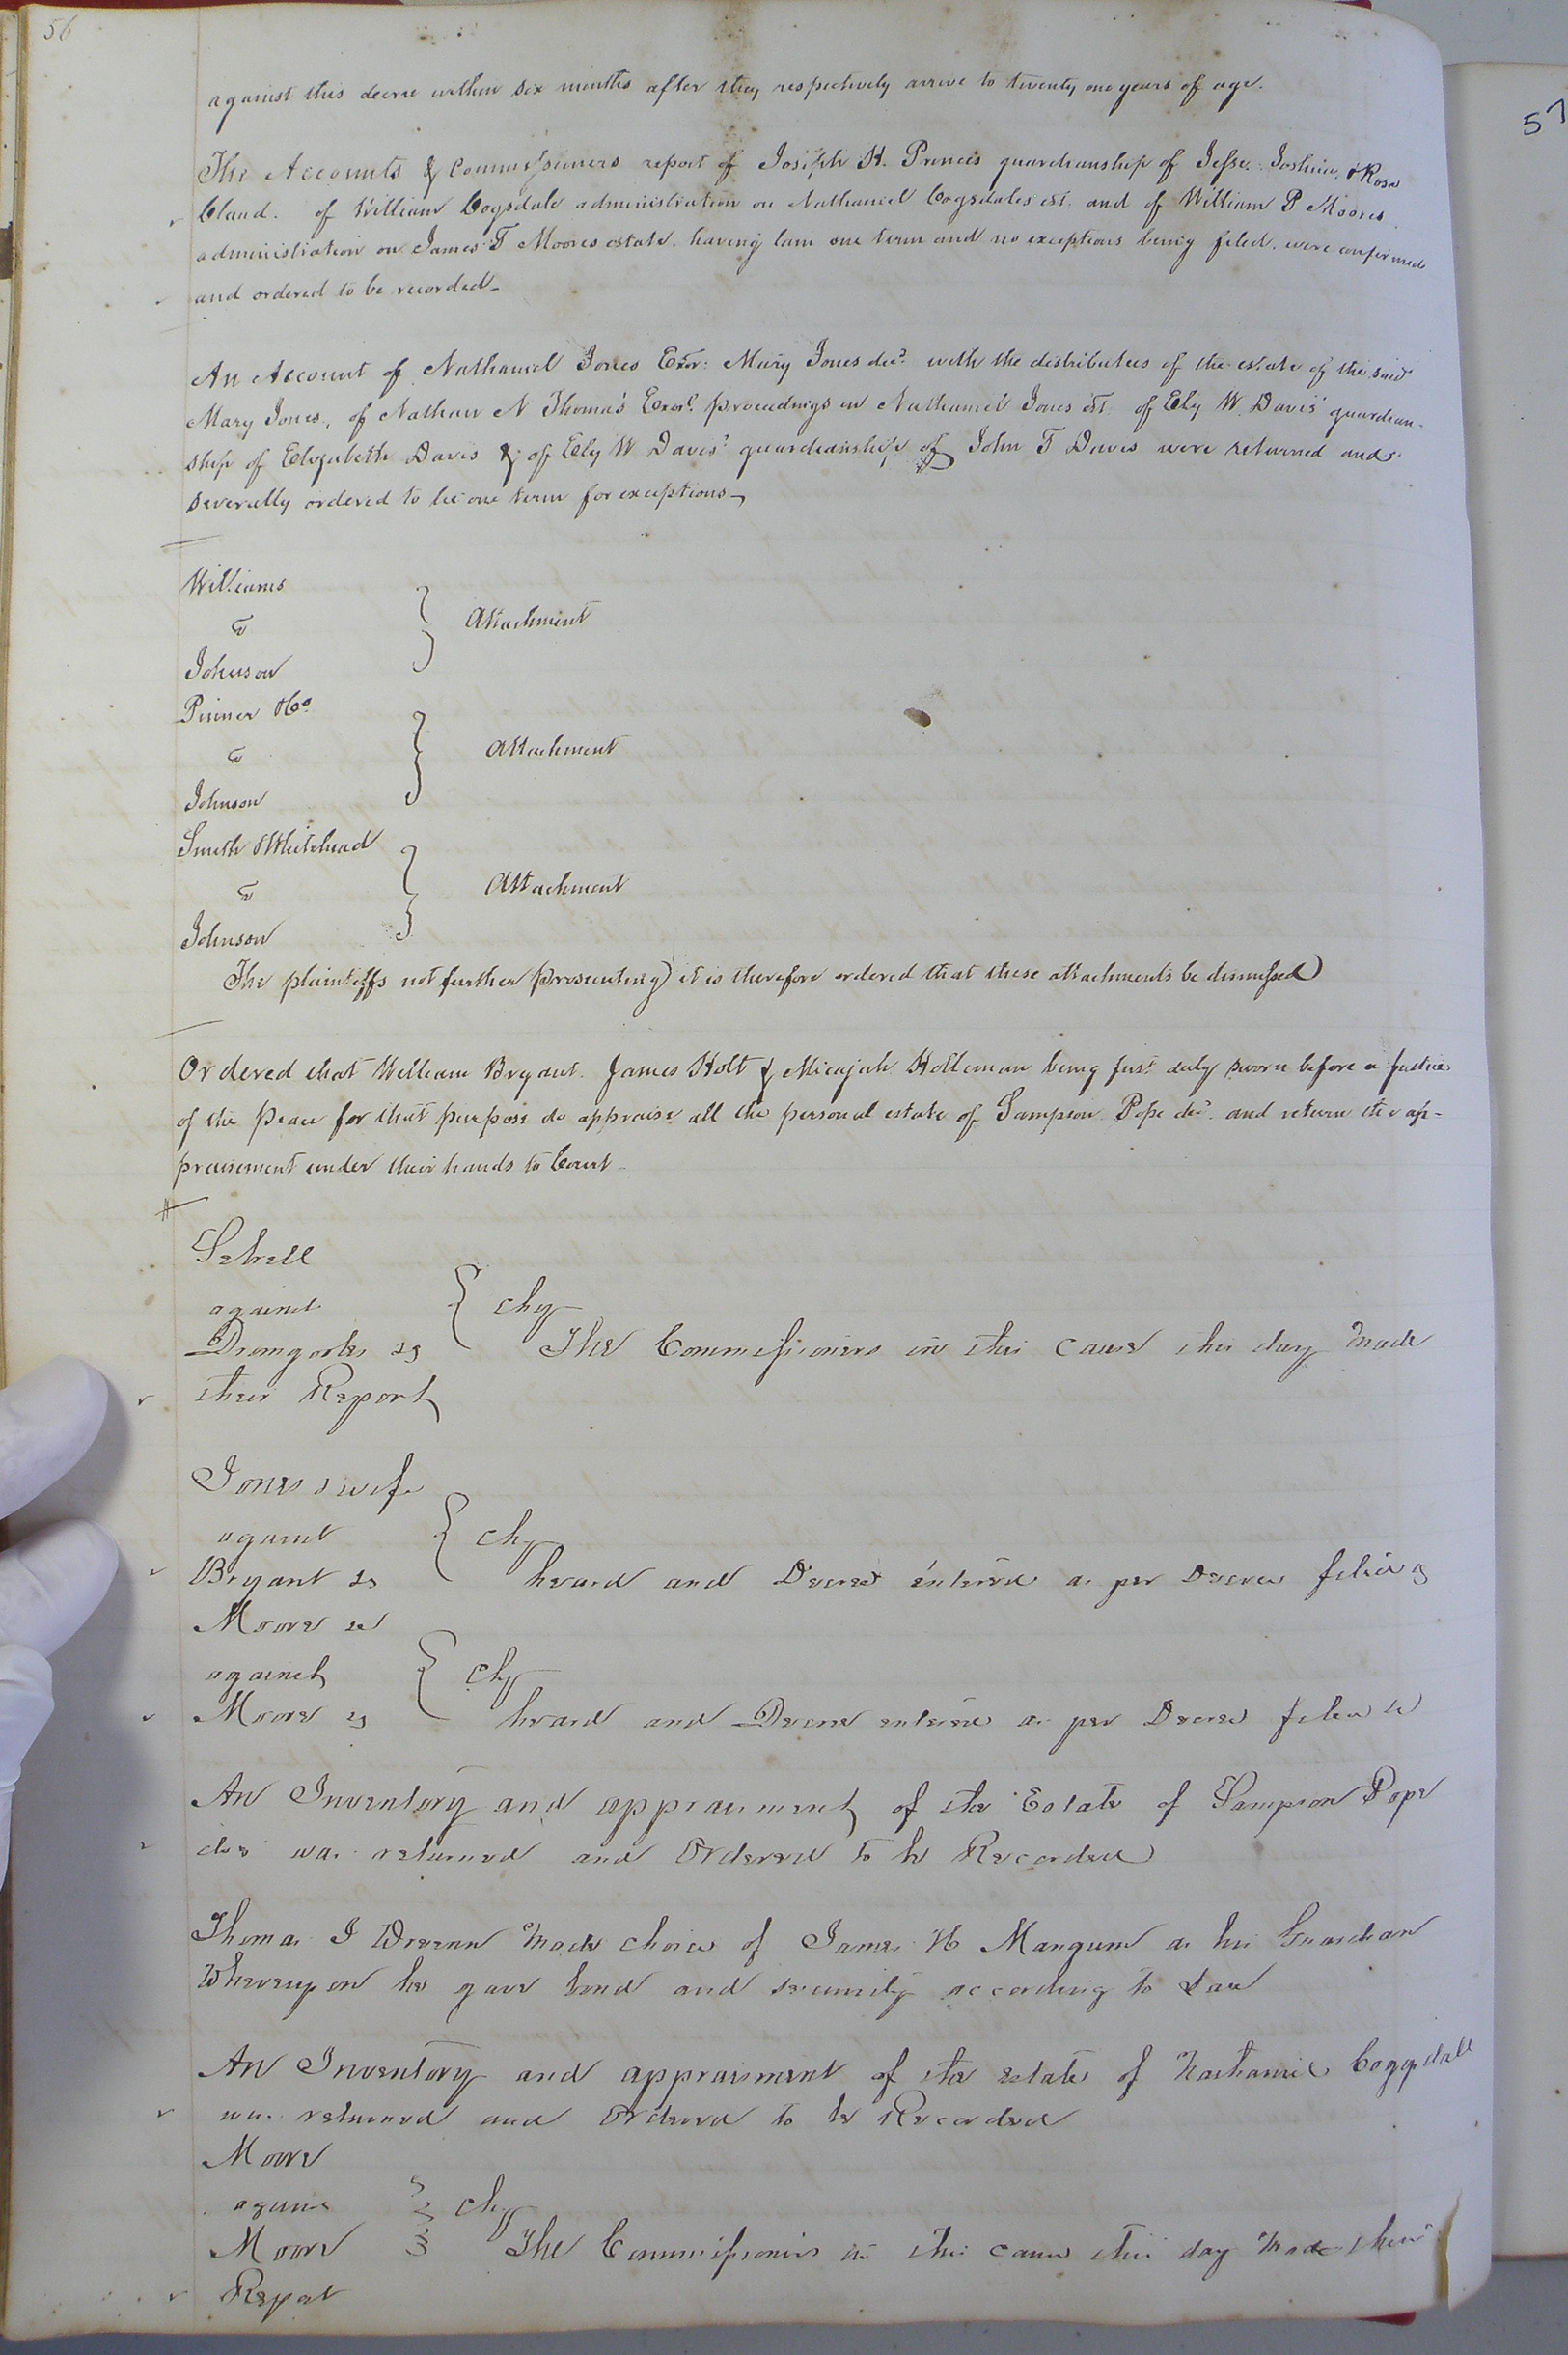 56
against this decree within six months after they respectively arrive to twenty one years of age.
The Accounts & Commissioners report of Joseph H. Princes guardianship of Jesse, Joshua, & Rosa
Claud. of William Cogsdale administration on Nathaniel Cogsdales est. and of William P Moores
administration on James T Moores estate. having lain one term and no exceptions being filed. were confirmed
and ordered to be recorded
An Account of Nathaniel Jones Exor: Mary Jones decd. with the distributees of the estate of the said
Mary Jones, of Nathan N Thomas' Exors. proceedings on Nathaniel Jones est. of Ely W. Davis' guardian-
ship of Elizabeth Davis & of Ely W Davis' guardianship of John T Davis were returned and
severally ordered to lie one term for exceptions
Williams
v
Johnson
Attachment
Pinner & Co
v
Johnson
Attachment
Smith & Whitehead
v
Johnson
Attachment
The plaintiffs not further prosecuting it is therefore ordered that these attachments be dismissed
Ordered that William Bryant. James Holt & Micajah Holleman being first duly sworn before a Justice
of the Peace for that purpose do appraise all the personal estate of Sampson Pope decd. and return the ap-
praisement under their hands to Court
against
Chy
The Commissioners in this Cause this day Made
their Report
Jones & wife
against
Chy
Bryant &c
heard and Decree entered as per Decree filed &c
Moore &c
against
Chy
Moore &c
heard and Decree entered as per Decree filed &c
An Inventory and appraisment of the Estate of Sampson Pope
decd was returned and Ordered to be Recorded
Thomas J Wrenn Made choice of James H Mangum as his Guardian
Whereupon he gave bond and security according to Law
An Inventory and appraisment of the estate of Nathaniel Coggsdall
was returned and Ordered to be Recorded
Moore
against
Chy
Moore
The Commissioners in this cause this day Made their
Report
57